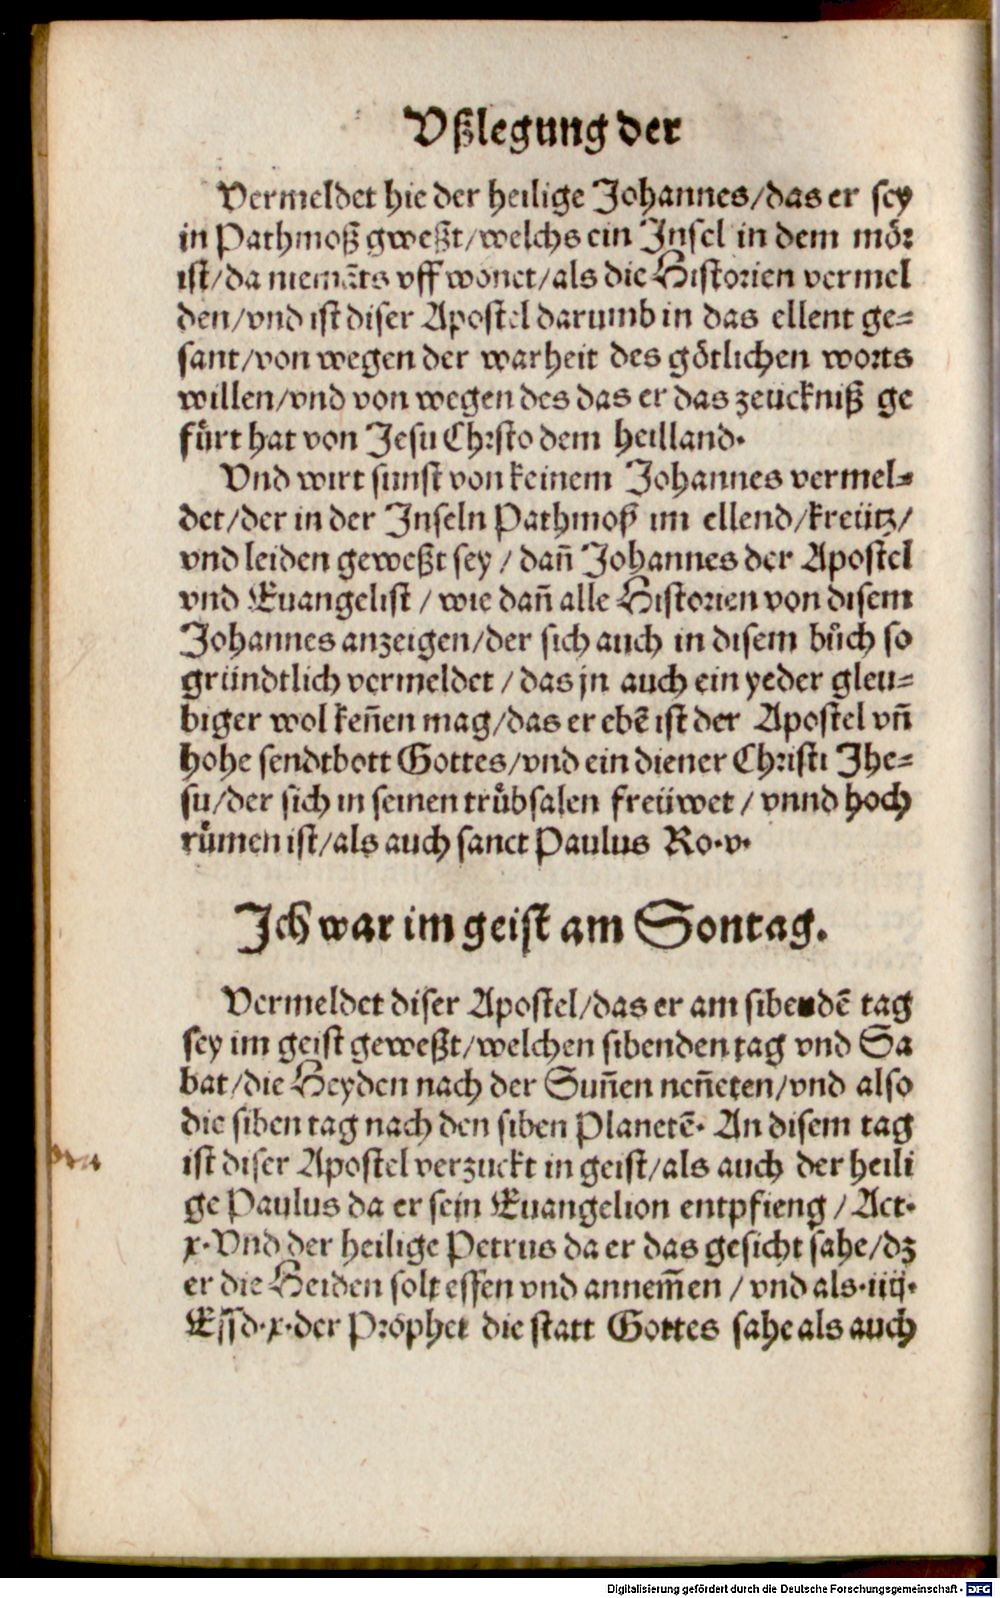 Vßlegung der
Vermeldet hie der heilige Johannes/das er sey
in Pathmoß gweßt/welchs ein Insel in dem mör
ist/da niemāts vff wonet/als die Historien vermel
den/vnd ist diser Apostel darumb in das ellent ge=
sant/von wegen der warheit des götlichen worts
willen/vnd von wegen des das er das zeuckniß ge
fürt hat von Jesu Chrsto dem heilland.
Vnd wirt sunst von keinem Johannes vermel=
det/der in der Inseln Pathmoß im ellend/kreütz/
vnd leiden geweßt sey / dañ Johannes der Apostel
vnd Euangelist / wie dañ alle Historien von disem
Johannes anzeigen/der sich auch in disem bůch so
gründtlich vermeldet / das jn auch ein yeder gleu=
biger wol keñen mag/das er ebē ist der Apostel vñ
hohe sendtbott Gottes/vnd ein diener Christi Jhe=
su/der sich in seinen trůbsalen freüwet / vnnd hoch
růmen ist/als auch sanct Paulus Ro.v.
Ich war im geist am Sontag.
Vermeldet diser Apostel/das er am sibendē tag
sey im geist geweßt/welchen sibenden tag vnd Sa
bat/die Heyden nach der Suñen neñeten/vnd also
die siben tag nach den siben Planetē. An disem tag
ist diser Apostel verzuckt in geist/als auch der heili
ge Paulus da er sein Euangelion entpfieng / Act.
x. Vnd der heilige Petrus da er das gesicht sahe/dz
er die Heiden solt essen vnd annem̄en / vnd als .iiij.
Essd.x.der Prophet die statt Gottes sahe als auch
Digitalisierung gefördert durch die Deutsche Forschungsgemeinschaft - DFG